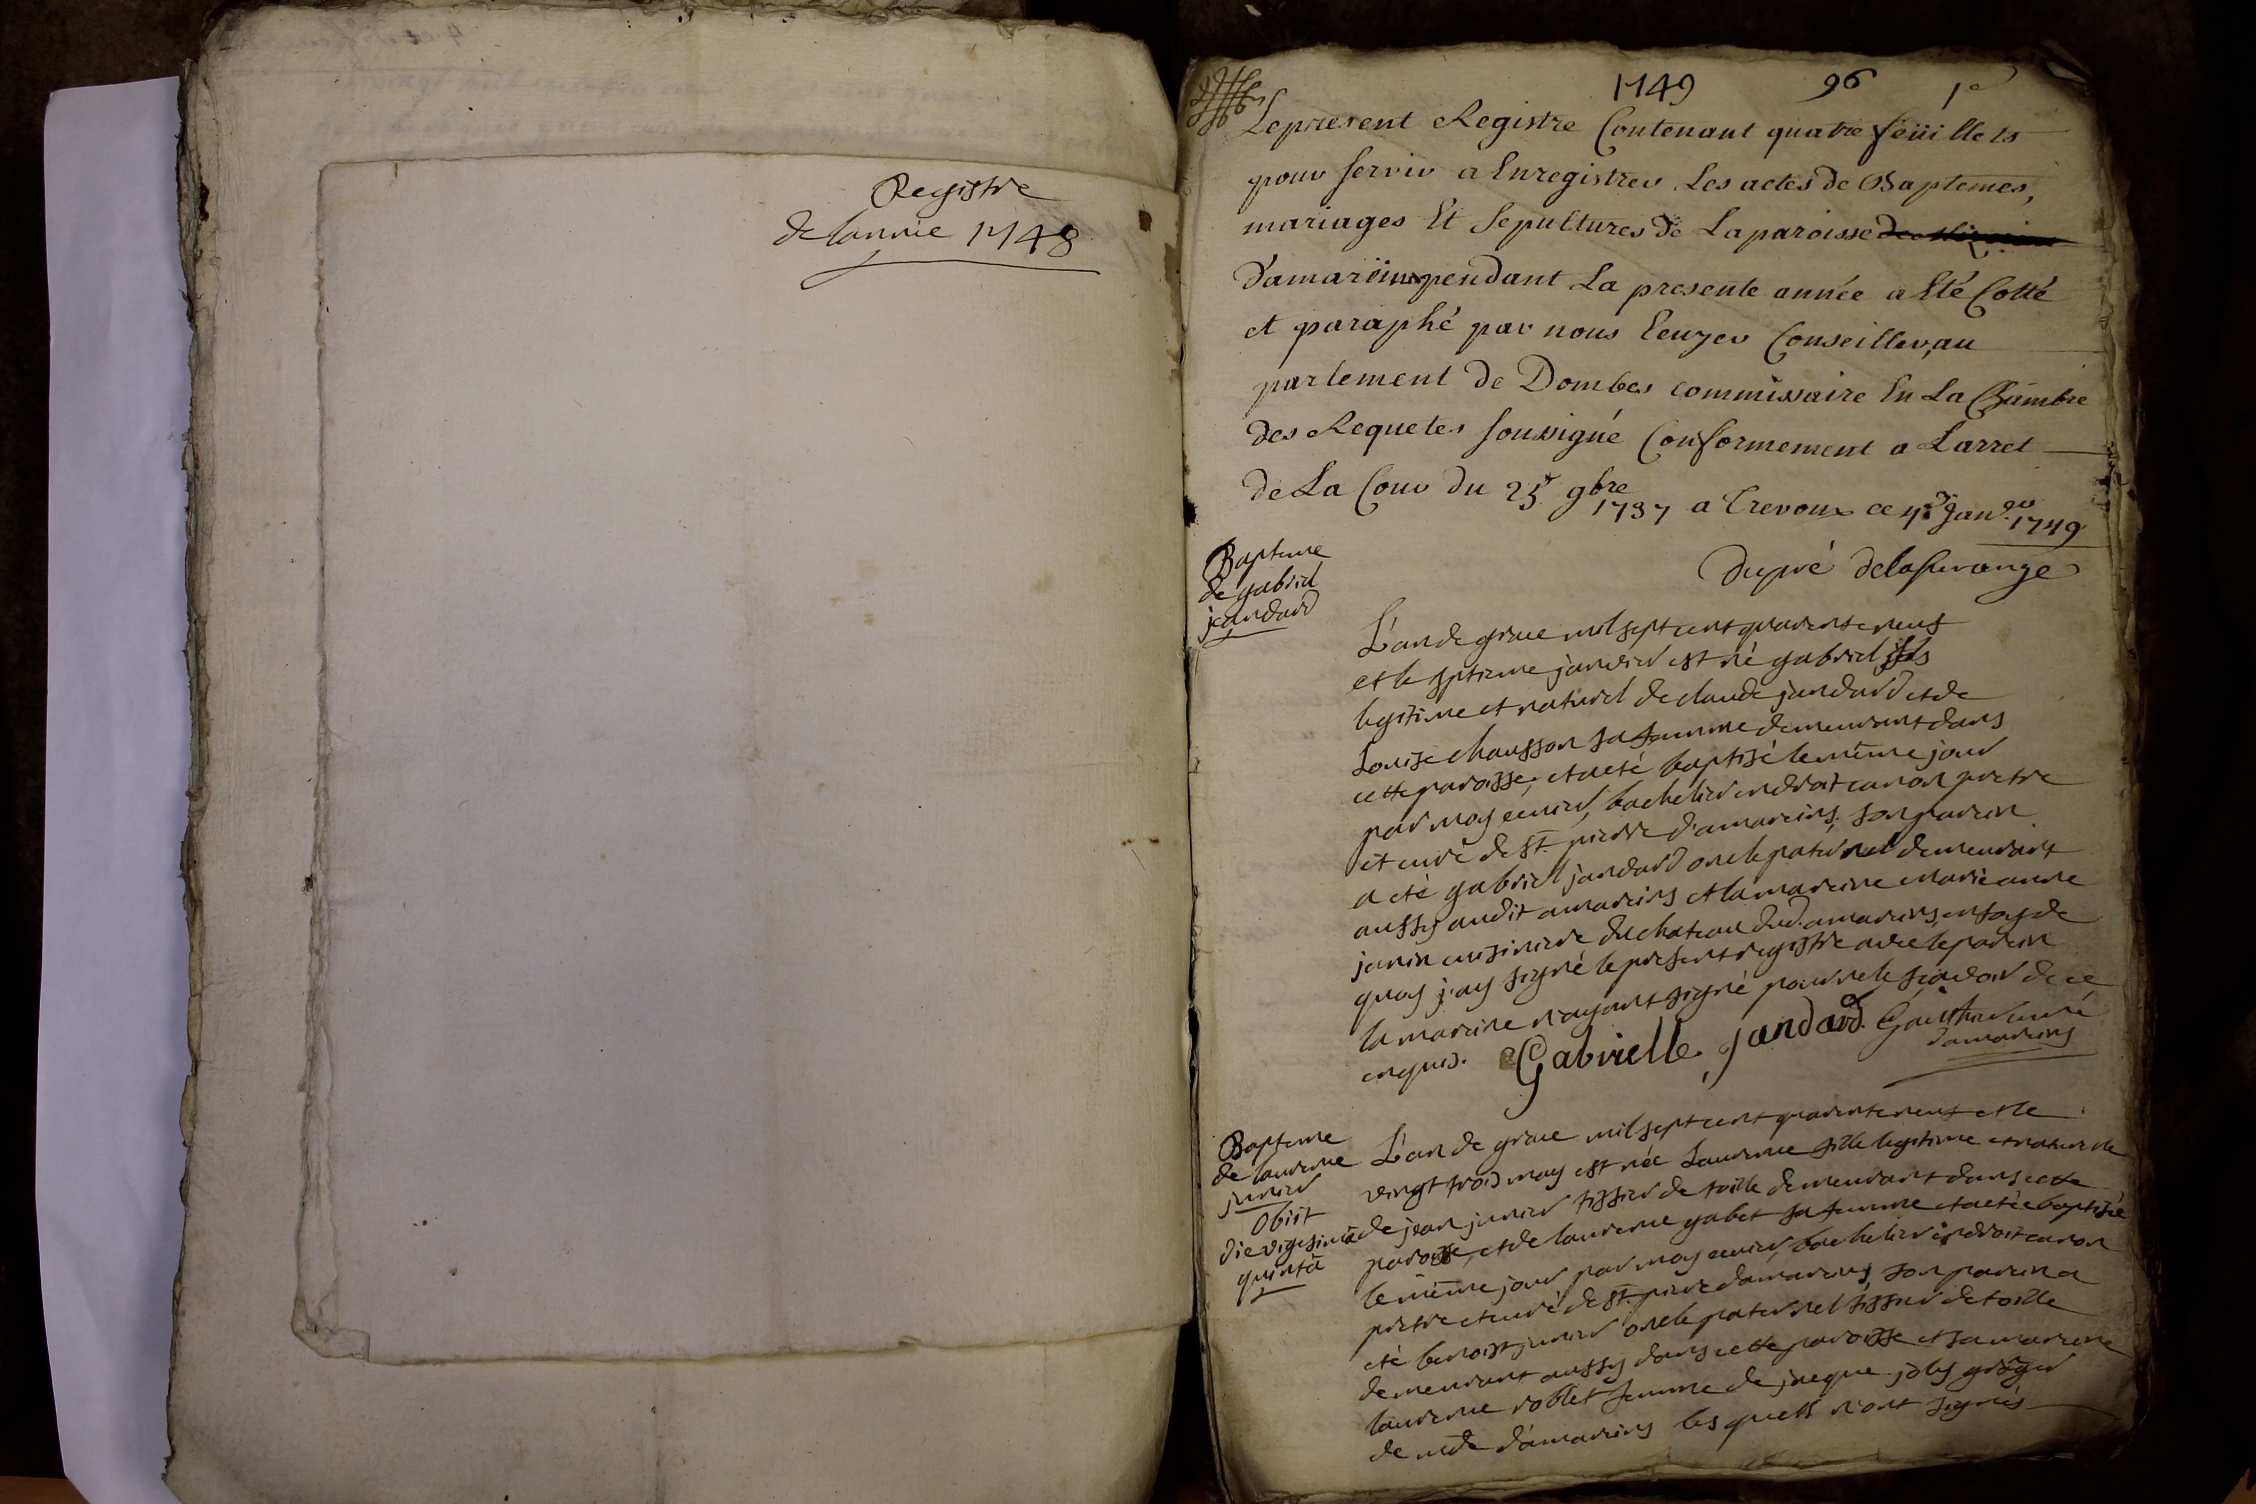 Registre
de lannée 1748
1749 96 1e
Le present Registre Contenant quatre feüillets
pour servir a Enregistrer Les actes de Baptemes,
mariages Et Sepultures de La paroisse
d'amareins pendant La presente année a Eté Cotté
et paraphé par nous Ecuyer Conseiller au
parlement de Dombes commissaire En La Chambre
des Requetes soussigné Conformement a Larret
de La Cour du 25e 9bre 1737 a Trevoux ce 4e Janer 1749
dupré
Bapteme
de gabriel
jandard
L'an de grace mil sept cent quarente neuf
et le septieme janvier est né gabriel fils
legitime et naturel de claude jandard et de
Louise chausson sa femme demeurant dans
cette paroisse, et a eté baptisé le même jour
par moy ecuier, bachelier en droit canon pretre
et curé de st. pierre d'amareins, son parein
a eté gabriel jandard oncle paternel demeurant
aussy audit amareins et la mareine marie anne
janin cuisiniere du chateau dud. amareins, en foy de
quoy j'ay signé le present registre avec le parein
la mareine n'ayant signé pour ne le sçavoir de ce
enquis. Gabrielle jandard. Gauthier curé
d'amareins
Bapteme
de laurence
junier
Obiit
die vigesimâ
quintâ
L'an de grace mil sept cent quarente neuf et le
vingt trois may est née Laurence fille legitime et naturele
de jean junier tissier de toille demeurant dans cette
paroisse, et de laurence gabet sa femme et a eté baptisée
le même jour par moy ecuier, bachelier en droit canon
pretre et curé de st. pierre damareins, son parein a
eté benoist junier oncle paternel tissier de toille
demeurant aussy dans cette paroisse et sa mareine
laurence roblet femme de jacque joly granger
de mde d'amareins lesquels n'ont signés